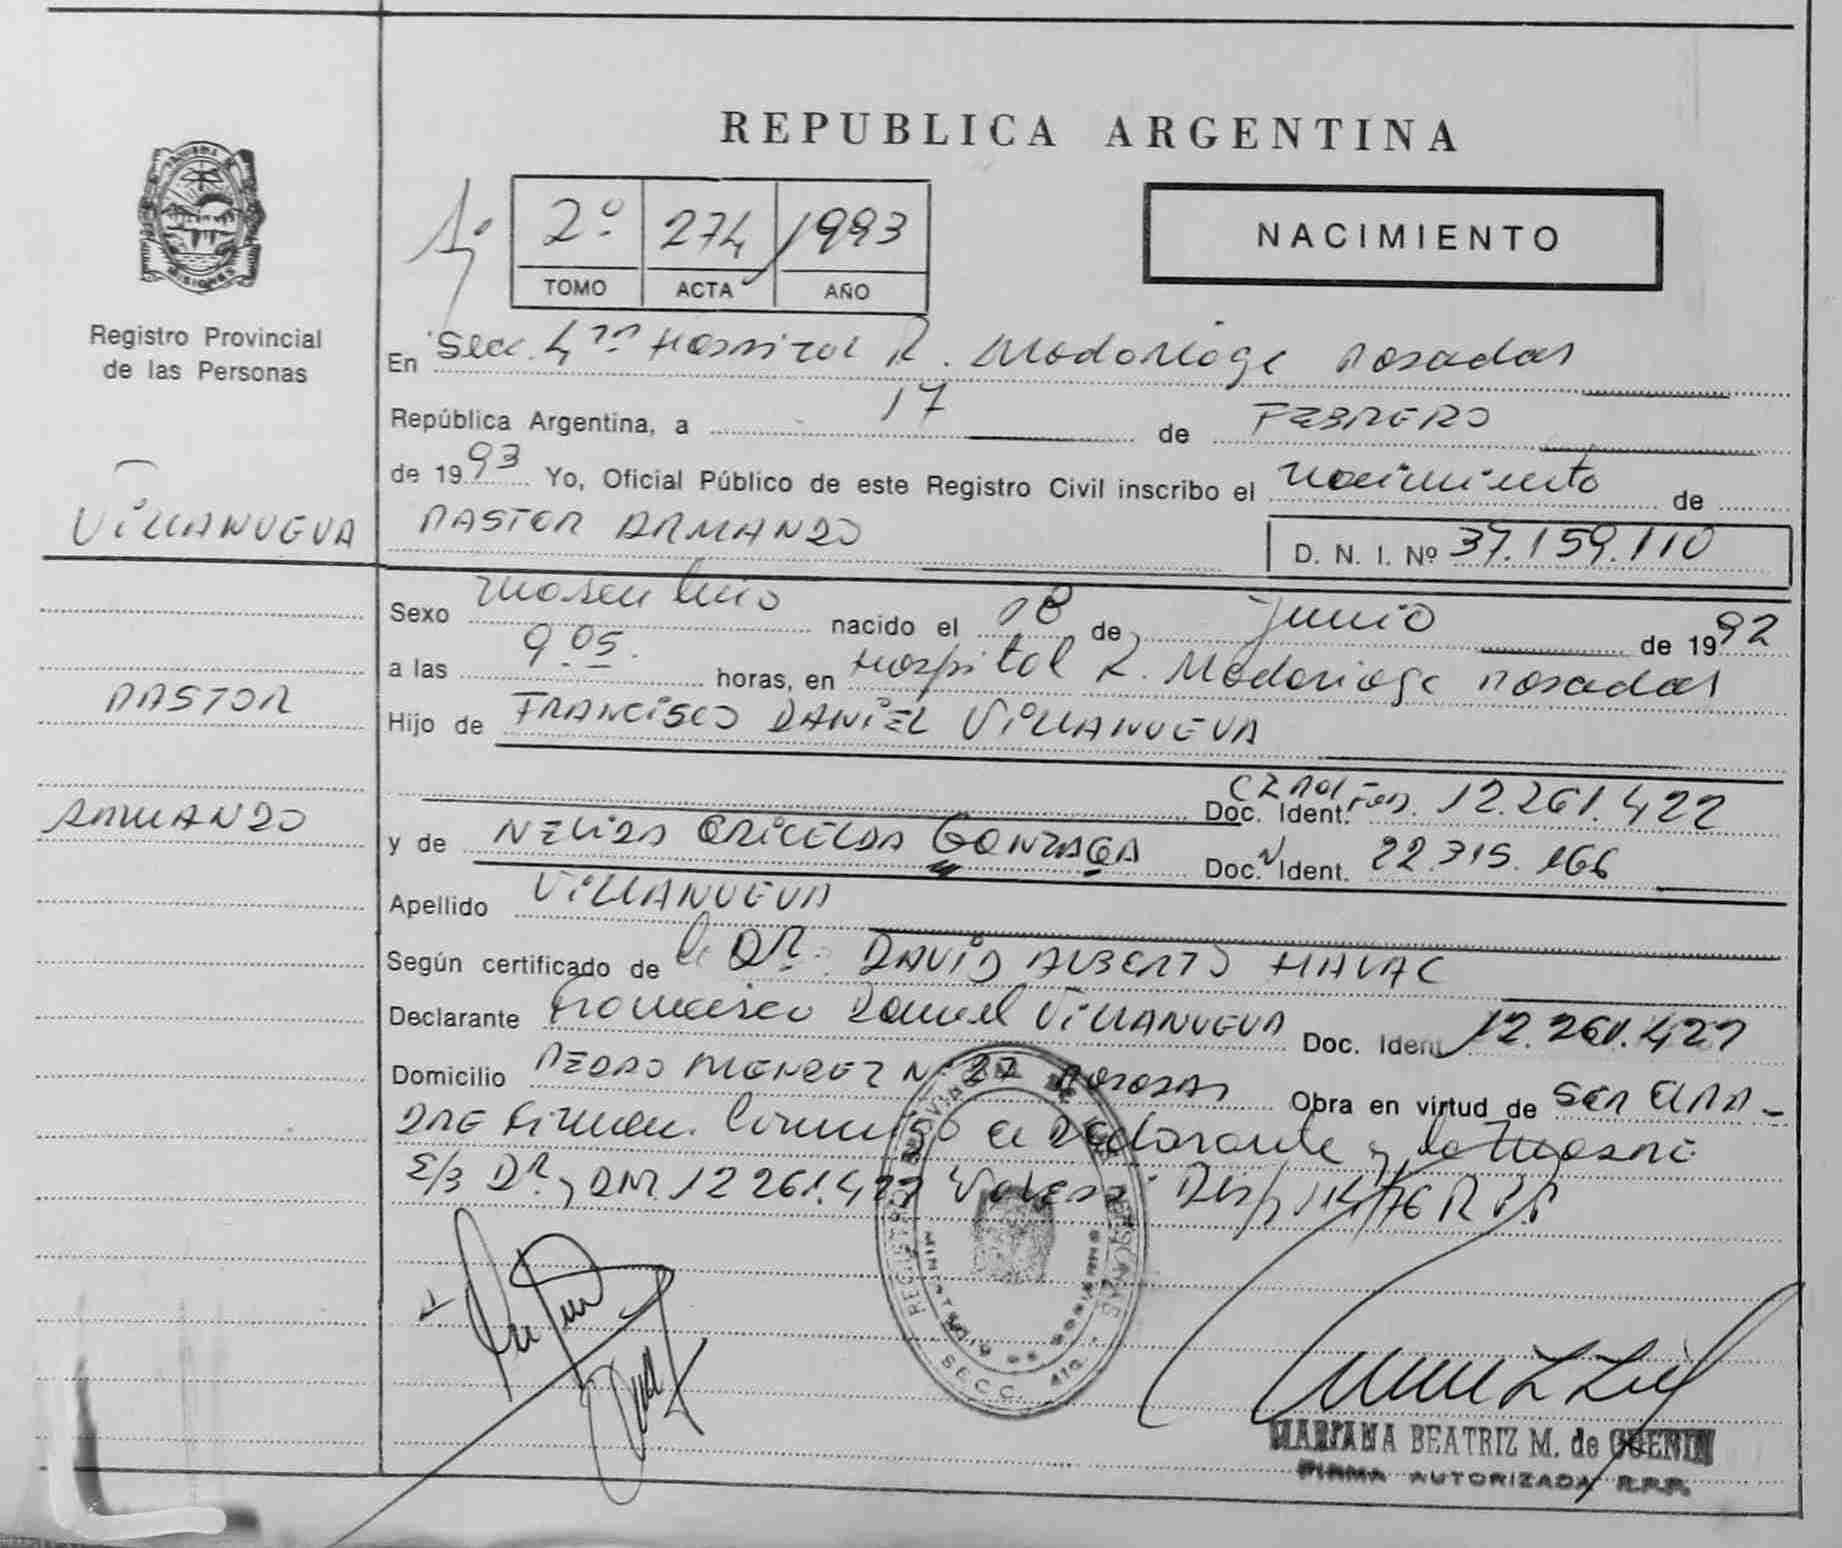 REPUBLICA ARGENTINA
1º 2º 274 1993
TOMO ACTA AÑO
NACIMIENTO
MISIONES
Registro Provincial
de las Personas
En Secc. 4ta Hospital R. Madariaga Posadas
República Argentina, a 17 de FEBRERO
de 1993 Yo, Oficial Público de este Registro Civil inscribo el nacimiento de
VILLANUEVA PASTOR ARMANDO D. N. I. Nº 37.159.110
Sexo masculino nacido el 18 de junio de 1992
a las 9.05. horas, en Hospital R. Madariaga Posadas
PASTOR
Hijo de FRANCISCO DANIEL VILLANUEVA
Doc. Ident. 12.261.422
ARMANDO
y de NELIDA GRICELDA GONZAGA Doc. Ident. 22.315.166
Apellido VILLANUEVA
Según certificado de DR. DAVID ALBERTO
Declarante Francisco Daniel VILLANUEVA Doc. Ident 12.261.422
Domicilio PEDRO MENDEZ Nº 27 POSADAS Obra en virtud de SER EL PA-
DRE Firman. el Declarante y la Madre
E/3 DR, 12 261.422 Disp 114/76 R.P.P
REGISTRO PROVINCIAL DE LAS PERSONAS
MINISTERIO DE GOBIERNO
SECC. 4ta.
MARIANA BEATRIZ M. de GUENIN
FIRMA AUTORIZADA R.P.P.